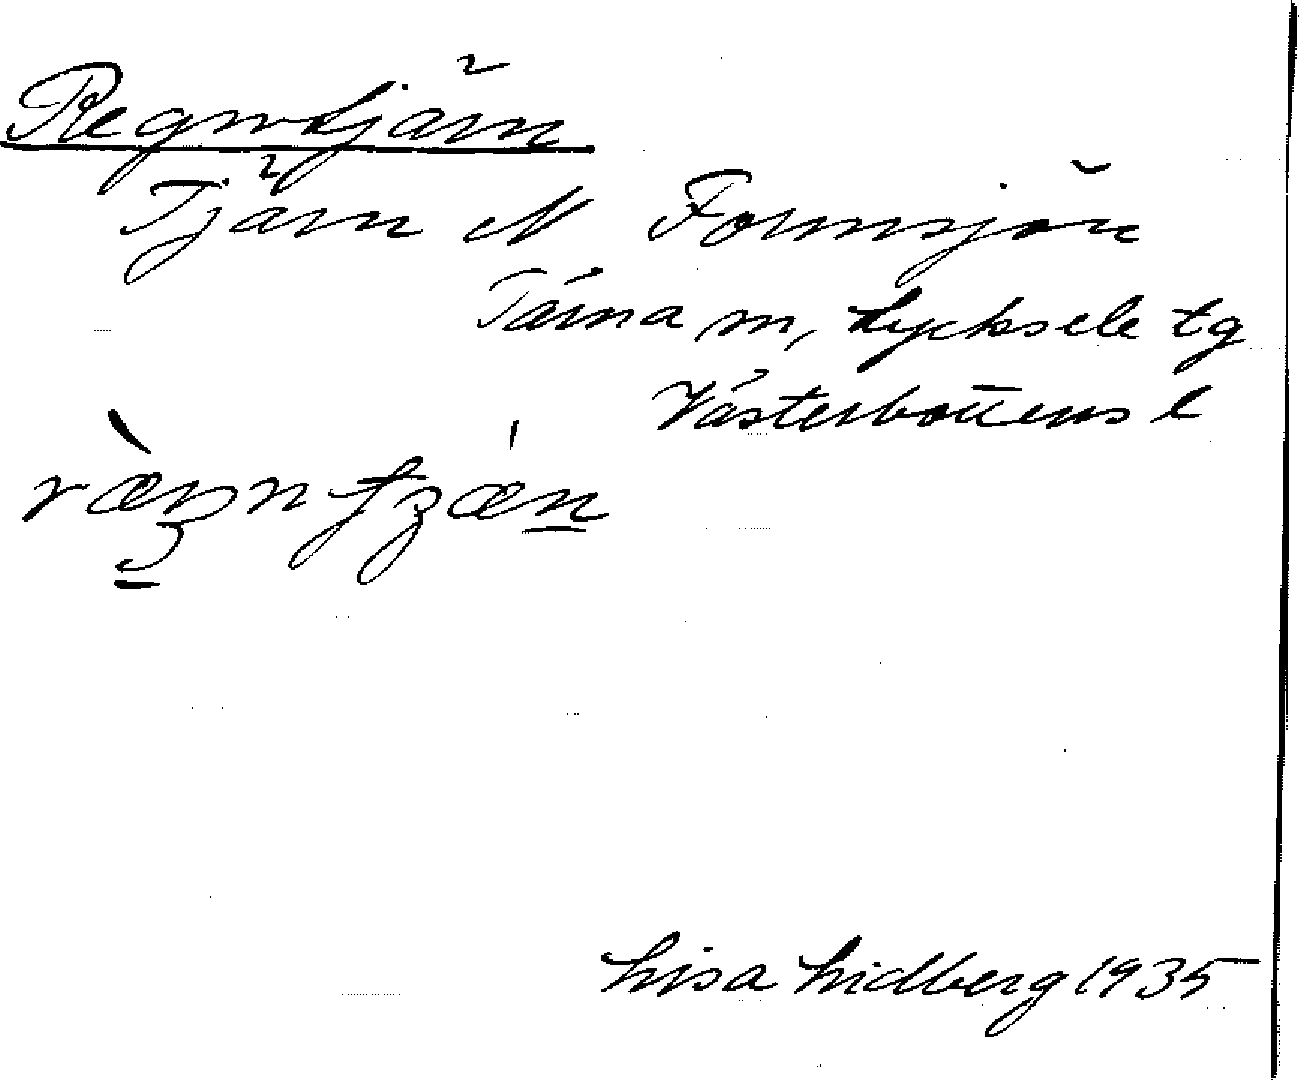 Regnotjärn
Tjärn N Fornsjön
Tärna sn, Lycksele tg
Västerbottens l
Lisa Lidberg 1935